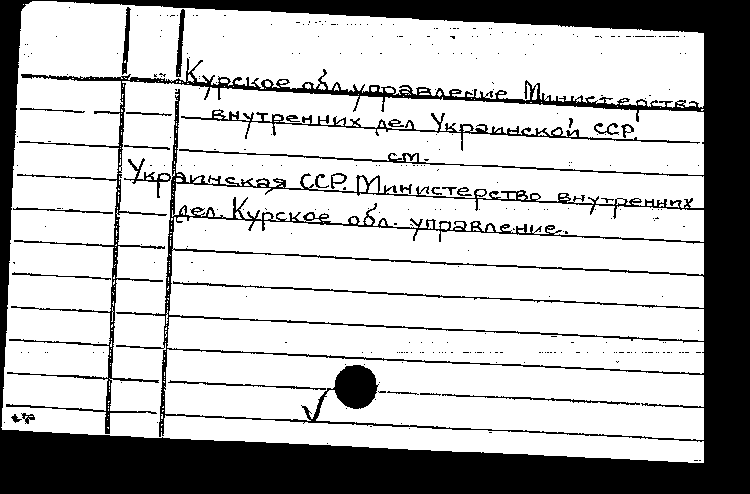 Курское обл. управление Министерства
внутренних дел Украинской ССР.
см.
Украинская ССР. Министерство внутренних
дел. Курское обл. управление.